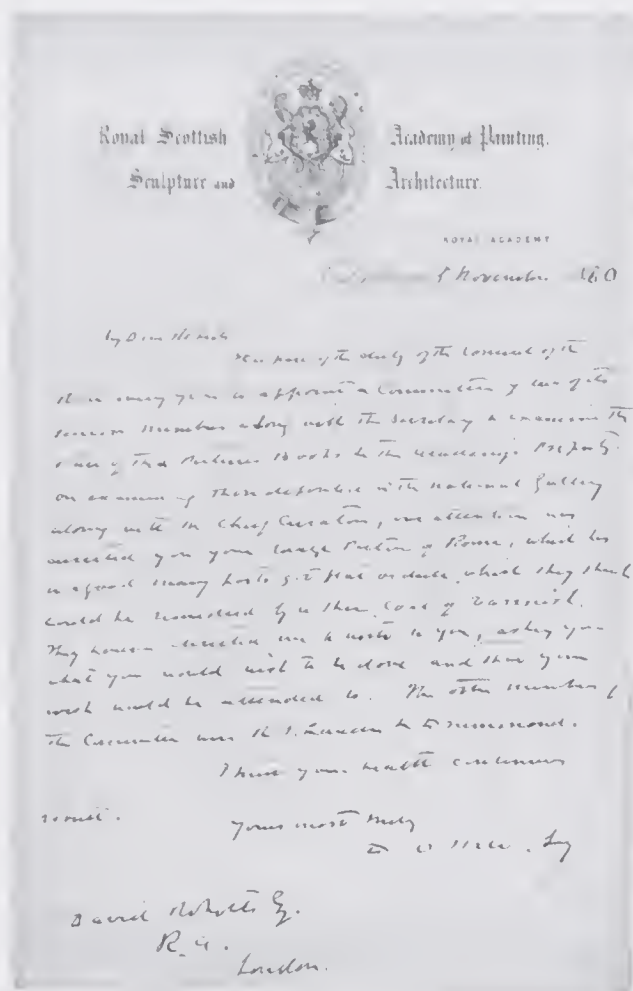 Royal Scottish Academy of Painting,
Sculpture and Architecture.
ROYAL ACADEMY
November
My Dear
part of the duty of the Council of the
every year to appoint a Committee of two of its
members along with the Secretary to examine the
Pictures Books &c the Academy's Property.
on examining those deposited in the National Gallery
along with the Chief Curator, our attention was
your large Picture of Rome, which has
in a good many parts got flat or dull, which they think
could be remedied by a thin Coat of Varnish.
They however me to write to you, asking you
what you would wish to be done and that your
wish would be attended to. The other members of
the Committee were
I trust your health continues
robust.
Yours most truly
David Roberts Esq.
R.A.
London.